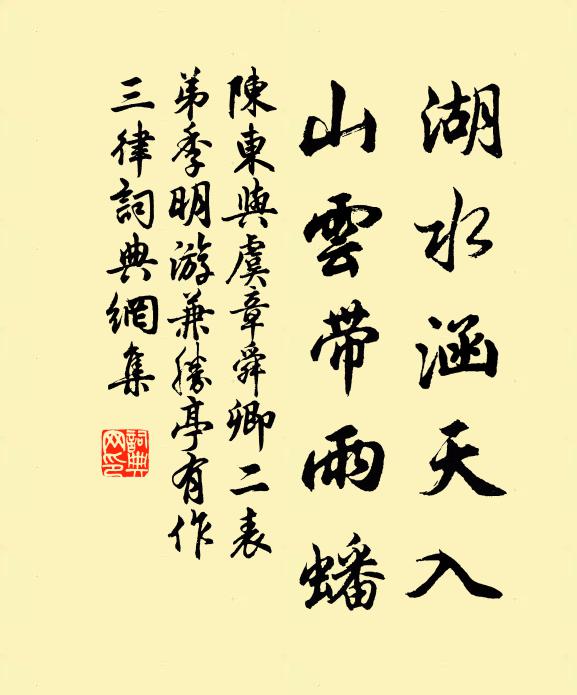 湖水涵天入
山雲帶雨蟠
陳東與虞章舜卿二表
弟季明游兼勝亭有作
三律詞典網集
詞典
网